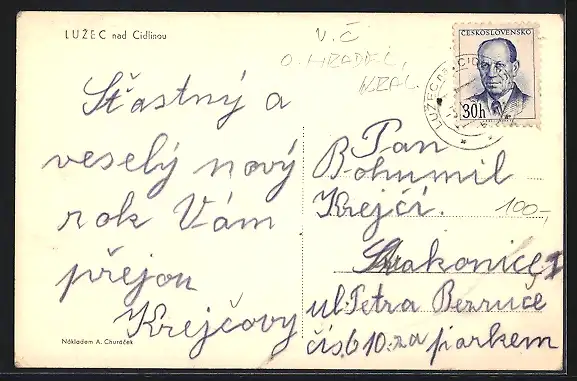 LUŽEC nad Cidlinou
V. Č
O. HRADEC,
KRÁL.
ČESKOSLOVENSKO
30h
LUŽEC nad CIDL
Šťastný a
veselý nový
rok Vám
přejou
Krejčovy
Pan
Bohumil
Krejčí.
100,-
Strakonice I
ul. Petra Bezruče
čís 610. za parkem
Nákladem A. Churáček